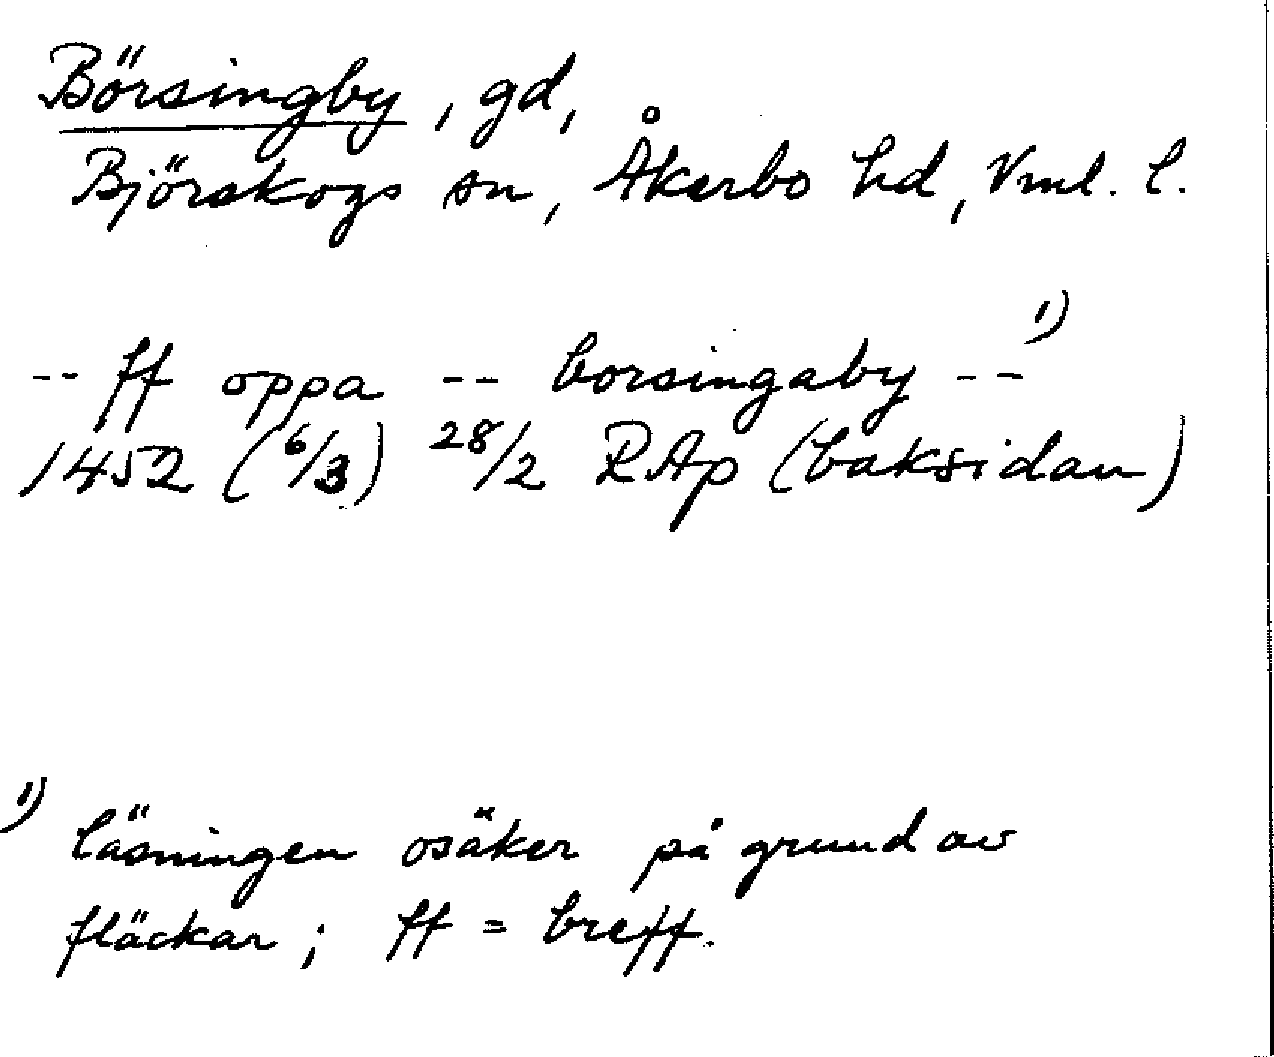 Börsingby, gd,
Björskogs sn, Åkerbo hd, Vml. l.
-- ff oppa -- borsingaby -- 1)
1452 (6/3) 28/2 RAp (baksidan)
1) läsningen osäker på grund av
fläckar; ff = breff.